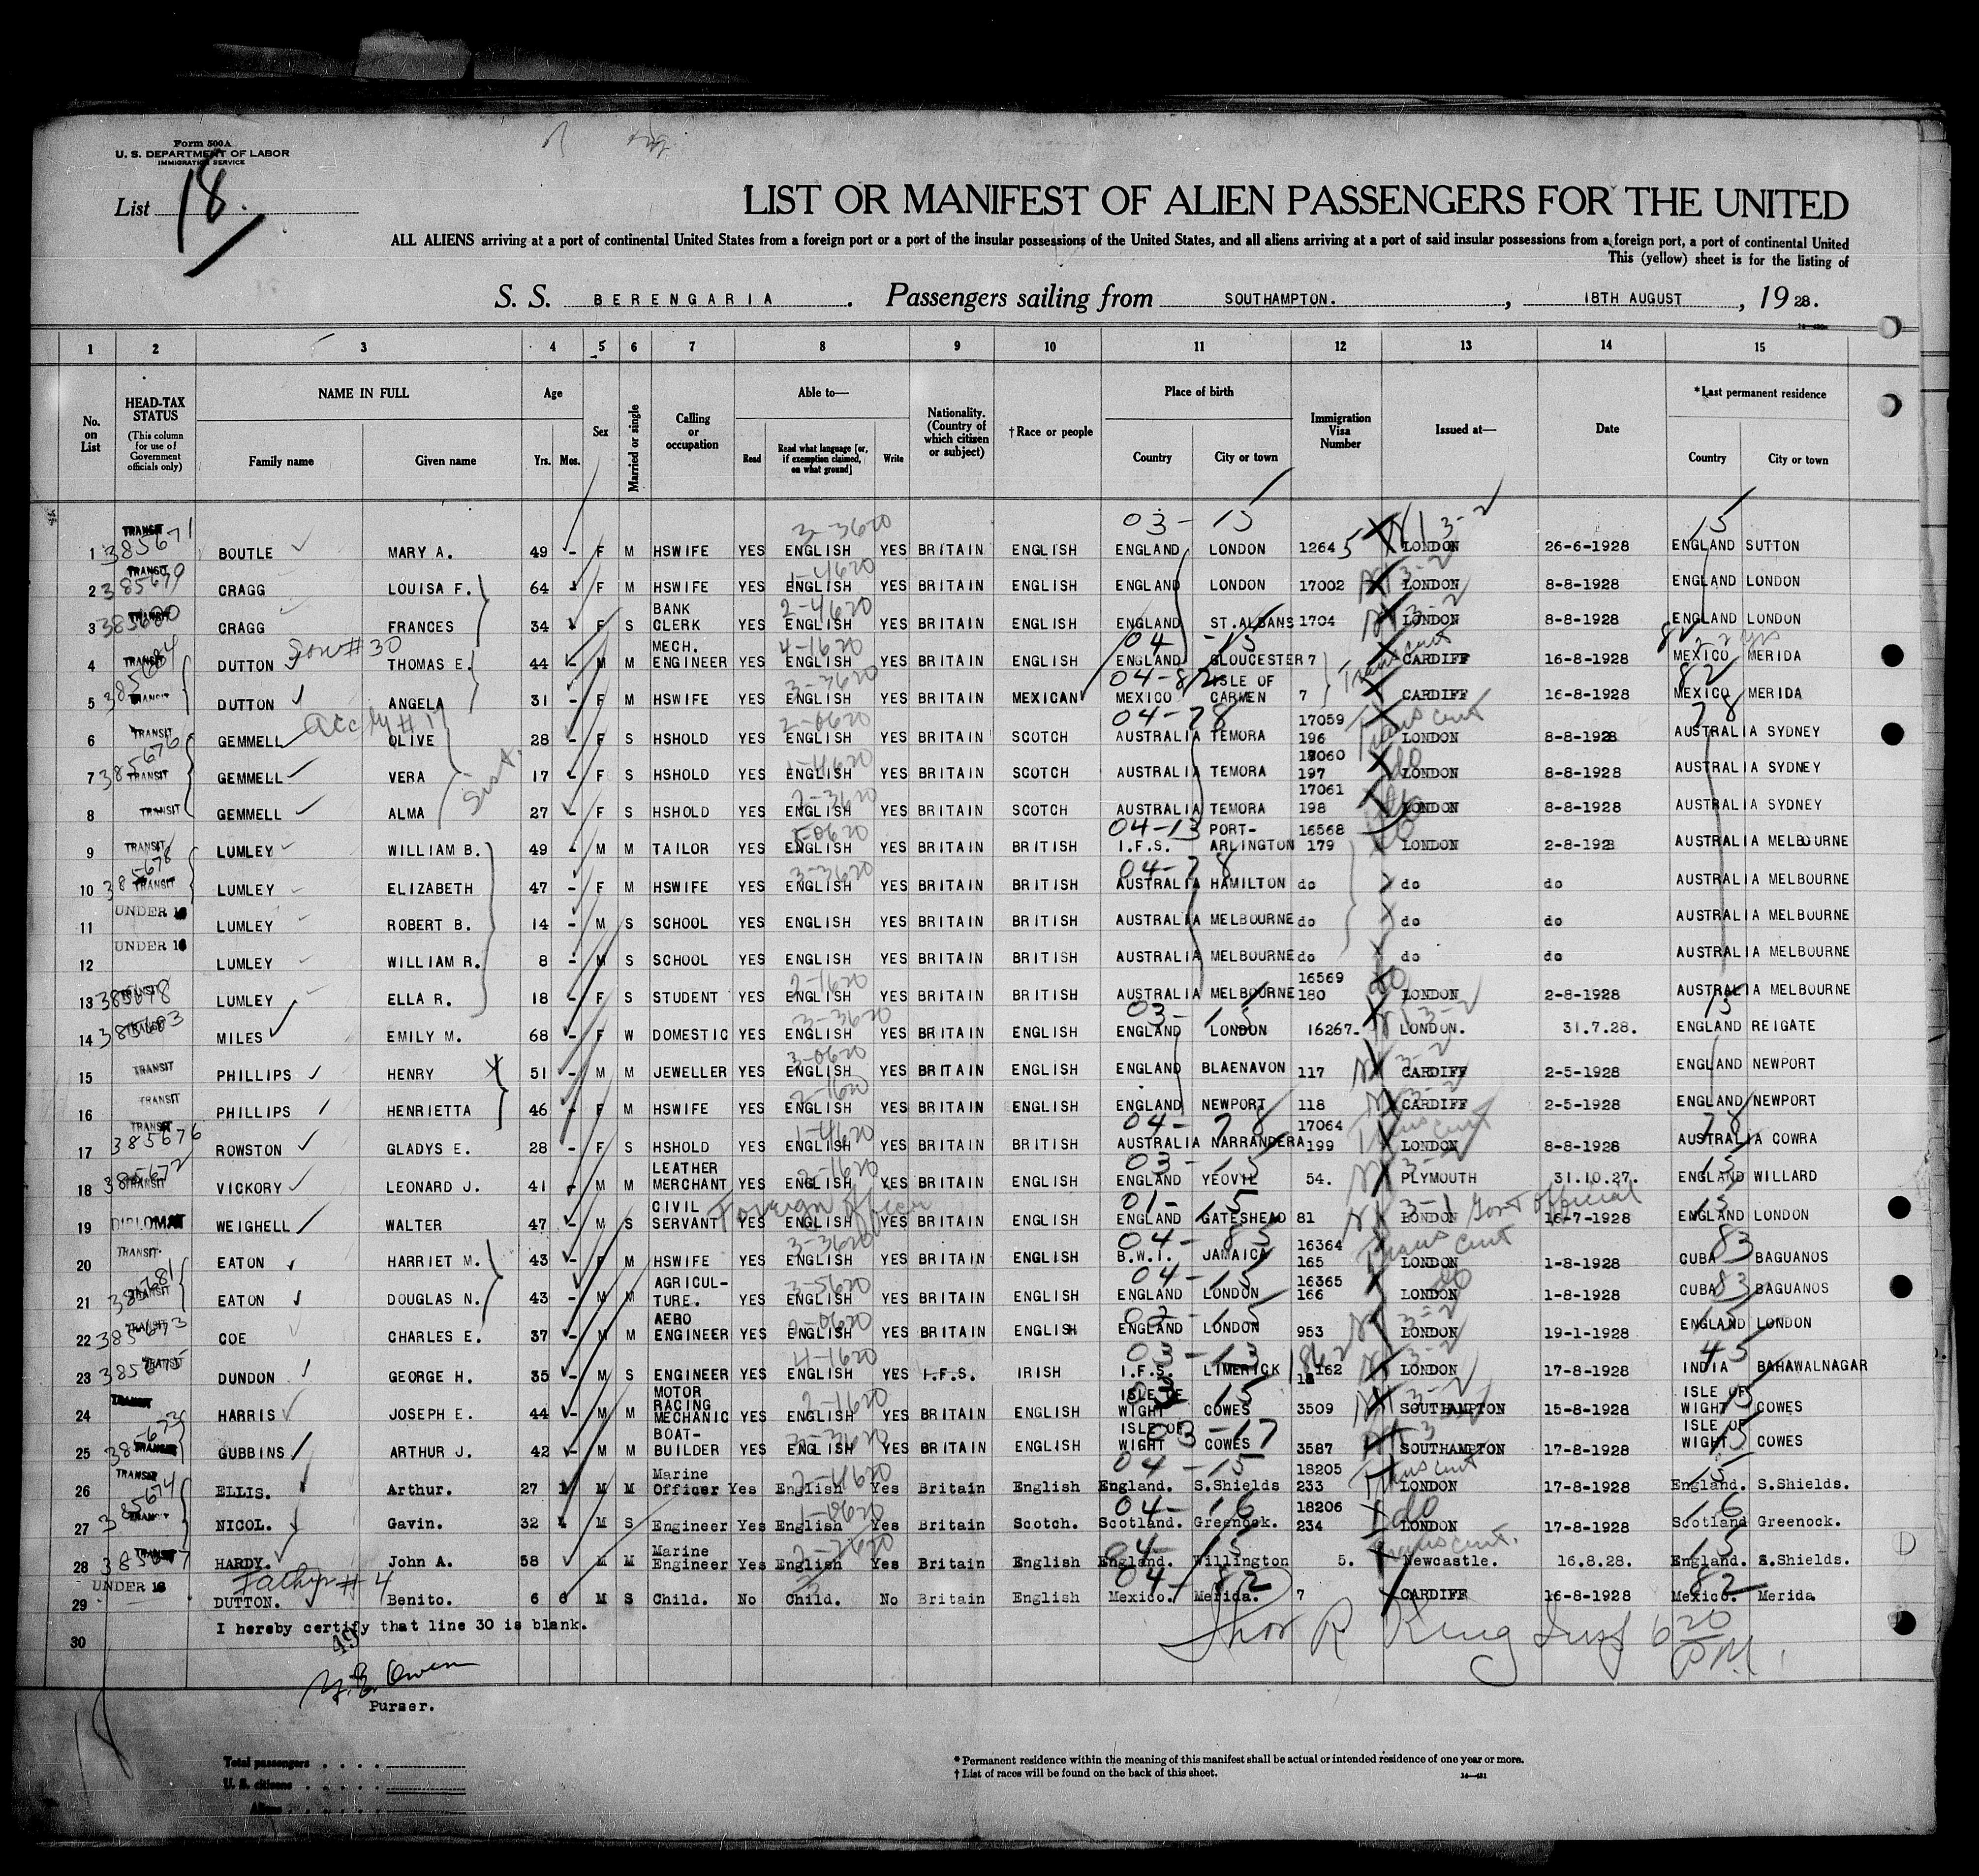 Form 500A
U. S. DEPARTMENT OF LABOR
IMMIGRATION SERVICE
List 18.
LIST OR MANIFEST OF ALIEN PASSENGERS FOR THE UNITED
ALL ALIENS arriving at a port of continental United States from a foreign port or a port of the insular possessions of the United States, and all aliens arriving at a port of said insular possessions from a foreign port, a port of continental United
This (yellow) sheet is for the listing of
S. S. BERENGARIA. Passengers sailing from SOUTHAMPTON., 18TH AUGUST, 1928.
1 2 3 4 5 6 7 8 9 10 11 12 13 14 15
No. on List
HEAD-TAX STATUS (This column for use of Government officials only)
NAME IN FULL Family name Given name
Age Yrs. Mos.
Sex
Married or single
Calling or occupation
Able to— Read Read what language [or, if exemption claimed, on what ground] Write
Nationality. (Country of which citizen or subject)
†Race or people
Place of birth Country City or town
Immigration Visa Number
Issued at—
Date
*Last permanent residence Country City or town
1 TRANSIT 385671 BOUTLE MARY A. 49 - F M HSWIFE YES ENGLISH 3-3620 YES BRITAIN ENGLISH 03-15 ENGLAND LONDON 12645 3-2 LONDON 26-6-1928 15 ENGLAND SUTTON
2 TRANSIT 385679 CRAGG LOUISA F. 64 F M HSWIFE YES ENGLISH 1-4620 YES BRITAIN ENGLISH ENGLAND LONDON 17002 3-2 LONDON 8-8-1928 ENGLAND LONDON
3 385680 CRAGG FRANCES 34 F S BANK CLERK YES ENGLISH 2-4620 YES BRITAIN ENGLISH ENGLAND ST.ALBANS 1704 3-2 LONDON 8-8-1928 ENGLAND LONDON
4 TRANSIT DUTTON Son #30 THOMAS E. 44 - M M MECH. ENGINEER YES ENGLISH 4-1620 YES BRITAIN ENGLISH 04-15 ENGLAND GLOUCESTER 7 CARDIFF 16-8-1928 82 MEXICO MERIDA
5 TRANSIT DUTTON ANGELA 31 - F M HSWIFE YES ENGLISH 3-3620 YES BRITAIN MEXICAN 04-82 MEXICO ISLE OF CARMEN 7 CARDIFF 16-8-1928 82 MEXICO MERIDA
6 TRANSIT GEMMELL OLIVE 28 - F S HSHOLD YES ENGLISH 2-0620 YES BRITAIN SCOTCH 04-78 AUSTRALIA TEMORA 17059 196 LONDON 8-8-1928 78 AUSTRALIA SYDNEY
7 385676 TRANSIT GEMMELL VERA 17 - F S HSHOLD YES ENGLISH 1-4620 YES BRITAIN SCOTCH AUSTRALIA TEMORA 18060 197 do LONDON 8-8-1928 AUSTRALIA SYDNEY
8 TRANSIT GEMMELL ALMA 27 F S HSHOLD YES ENGLISH 2-3620 YES BRITAIN SCOTCH AUSTRALIA TEMORA 17061 198 LONDON 8-8-1928 AUSTRALIA SYDNEY
9 TRANSIT LUMLEY WILLIAM B. 49 - M M TAILOR YES ENGLISH YES BRITAIN BRITISH 04-13 I.F.S. PORT-ARLINGTON 16568 179 LONDON 2-8-1928 AUSTRALIA MELBOURNE
10 385678 TRANSIT LUMLEY ELIZABETH 47 - F M HSWIFE YES ENGLISH 3-3620 YES BRITAIN BRITISH 04-78 AUSTRALIA HAMILTON do do do AUSTRALIA MELBOURNE
11 UNDER 16 LUMLEY ROBERT B. 14 - M S SCHOOL YES ENGLISH YES BRITAIN BRITISH AUSTRALIA MELBOURNE do do do AUSTRALIA MELBOURNE
12 UNDER 16 LUMLEY WILLIAM R. 8 - M S SCHOOL YES ENGLISH YES BRITAIN BRITISH AUSTRALIA MELBOURNE do do do AUSTRALIA MELBOURNE
13 385678 LUMLEY ELLA R. 18 - F S STUDENT YES ENGLISH 2-1620 YES BRITAIN BRITISH AUSTRALIA MELBOURNE 16569 180 do LONDON 2-8-1928 AUSTRALIA MELBOURNE
14 385683 MILES EMILY M. 68 - F W DOMESTIC YES ENGLISH 3-3620 YES BRITAIN ENGLISH 03-15 ENGLAND LONDON 16267. 3-2 LONDON. 31.7.28. 15 ENGLAND REIGATE
15 TRANSIT PHILLIPS HENRY X 51 - M M JEWELLER YES ENGLISH 3-0620 YES BRITAIN ENGLISH ENGLAND BLAENAVON 117 3-2 CARDIFF 2-5-1928 ENGLAND NEWPORT
16 TRANSIT PHILLIPS HENRIETTA 46 - F M HSWIFE YES ENGLISH 2-1620 YES BRITAIN ENGLISH ENGLAND NEWPORT 118 3-2 CARDIFF 2-5-1928 ENGLAND NEWPORT
17 TRANSIT 385676 ROWSTON GLADYS E. 28 - F S HSHOLD YES ENGLISH 1-4620 YES BRITAIN BRITISH 04-78 AUSTRALIA NARRANDERA 17064 199 LONDON 8-8-1928 78 AUSTRALIA COWRA
18 385672 TRANSIT VICKORY LEONARD J. 41 - M M LEATHER MERCHANT YES ENGLISH 2-1620 YES BRITAIN ENGLISH 03-15 ENGLAND YEOVIL 54. 3-2 PLYMOUTH 31.10.27. 15 ENGLAND WILLARD
19 DIPLOMAT WEIGHELL WALTER 47 - M S CIVIL SERVANT Foreign Officer YES ENGLISH YES BRITAIN ENGLISH 01-15 ENGLAND GATESHEAD 81 3-1 Govt Official LONDON 16-7-1928 15 ENGLAND LONDON
20 TRANSIT EATON HARRIET M. 43 - F M HSWIFE YES ENGLISH 3-3620 YES BRITAIN ENGLISH 04-85 B.W.I. JAMAICA 16364 165 LONDON 1-8-1928 CUBA 83 BAGUANOS
21 TRANSIT EATON DOUGLAS N. 43 - M M AGRICUL-TURE. YES ENGLISH 3-5620 YES BRITAIN ENGLISH 04-15 ENGLAND LONDON 16365 166 do LONDON 1-8-1928 CUBA 83 BAGUANOS
22 385673 TRANSIT COE CHARLES E. 37 - M M AERO ENGINEER YES ENGLISH YES BRITAIN ENGLISH 02-15 ENGLAND LONDON 953 3-2 LONDON 19-1-1928 15 ENGLAND LONDON
23 TRANSIT DUNDON GEORGE H. 35 - M S ENGINEER YES ENGLISH 4-1620 YES I.F.S. IRISH 03-13 I.F.S. LIMERICK 3-2 LONDON 17-8-1928 45 INDIA BAHAWALNAGAR
24 TRANSIT HARRIS JOSEPH E. 44 - M M MOTOR RACING MECHANIC YES ENGLISH 2-1620 YES BRITAIN ENGLISH 15 ISLE OF WIGHT COWES 3509 3-2 SOUTHAMPTON 15-8-1928 ISLE OF WIGHT 15 COWES
25 385673 TRANSIT GUBBINS ARTHUR J. 42 - M M BOAT-BUILDER YES ENGLISH YES BRITAIN ENGLISH 03-17 ISLE OF WIGHT COWES 3587 SOUTHAMPTON 17-8-1928 ISLE OF WIGHT 15 COWES
26 TRANSIT ELLIS. Arthur. 27 M M Marine Officer Yes English 2-4620 Yes Britain English 04-15 England. S.Shields 18205 233 LONDON 17-8-1928 15 England. S.Shields.
27 385674 TRANSIT NICOL. Gavin. 32 M S Engineer Yes English 1-0620 Yes Britain Scotch. 04-16 Scotland. Greenock. 18206 234 do LONDON 17-8-1928 16 Scotland Greenock.
28 385677 TRANSIT HARDY. John A. 58 M M Marine Engineer Yes English Yes Britain English 04-15 England. Willington 5. Newcastle. 16.8.28. 15 England. S.Shields.
29 UNDER 16 Father #4 DUTTON. Benito. 6 6 M S Child. No Child. No Britain English 04-82 Mexico. Merida. 7 CARDIFF 16-8-1928 82 Mexico. Merida.
30 I hereby certify that line 30 is blank.
Purser.
Total passengers
U. S. citizens
Aliens
* Permanent residence within the meaning of this manifest shall be actual or intended residence of one year or more.
† List of races will be found on the back of this sheet.